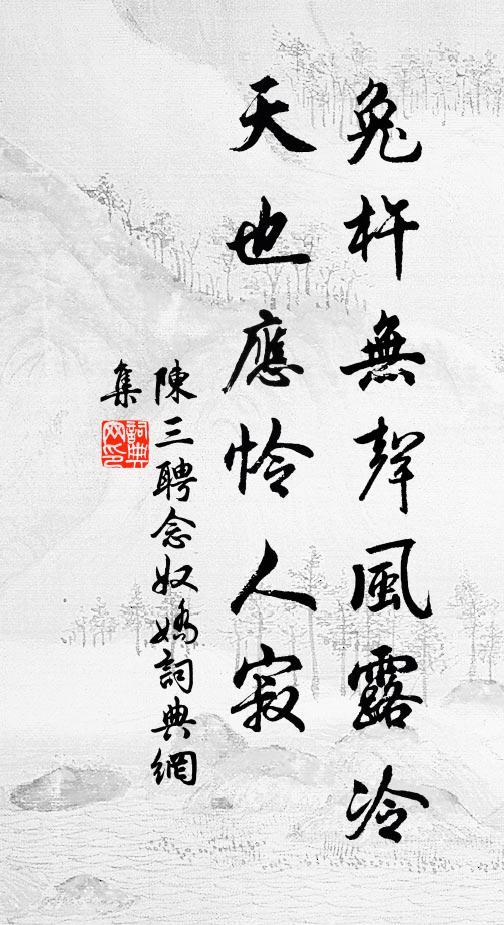 兔杵無聲風露冷
天也應怜人寂
陳三聘念奴嬌詞典網
集
詞典
网印